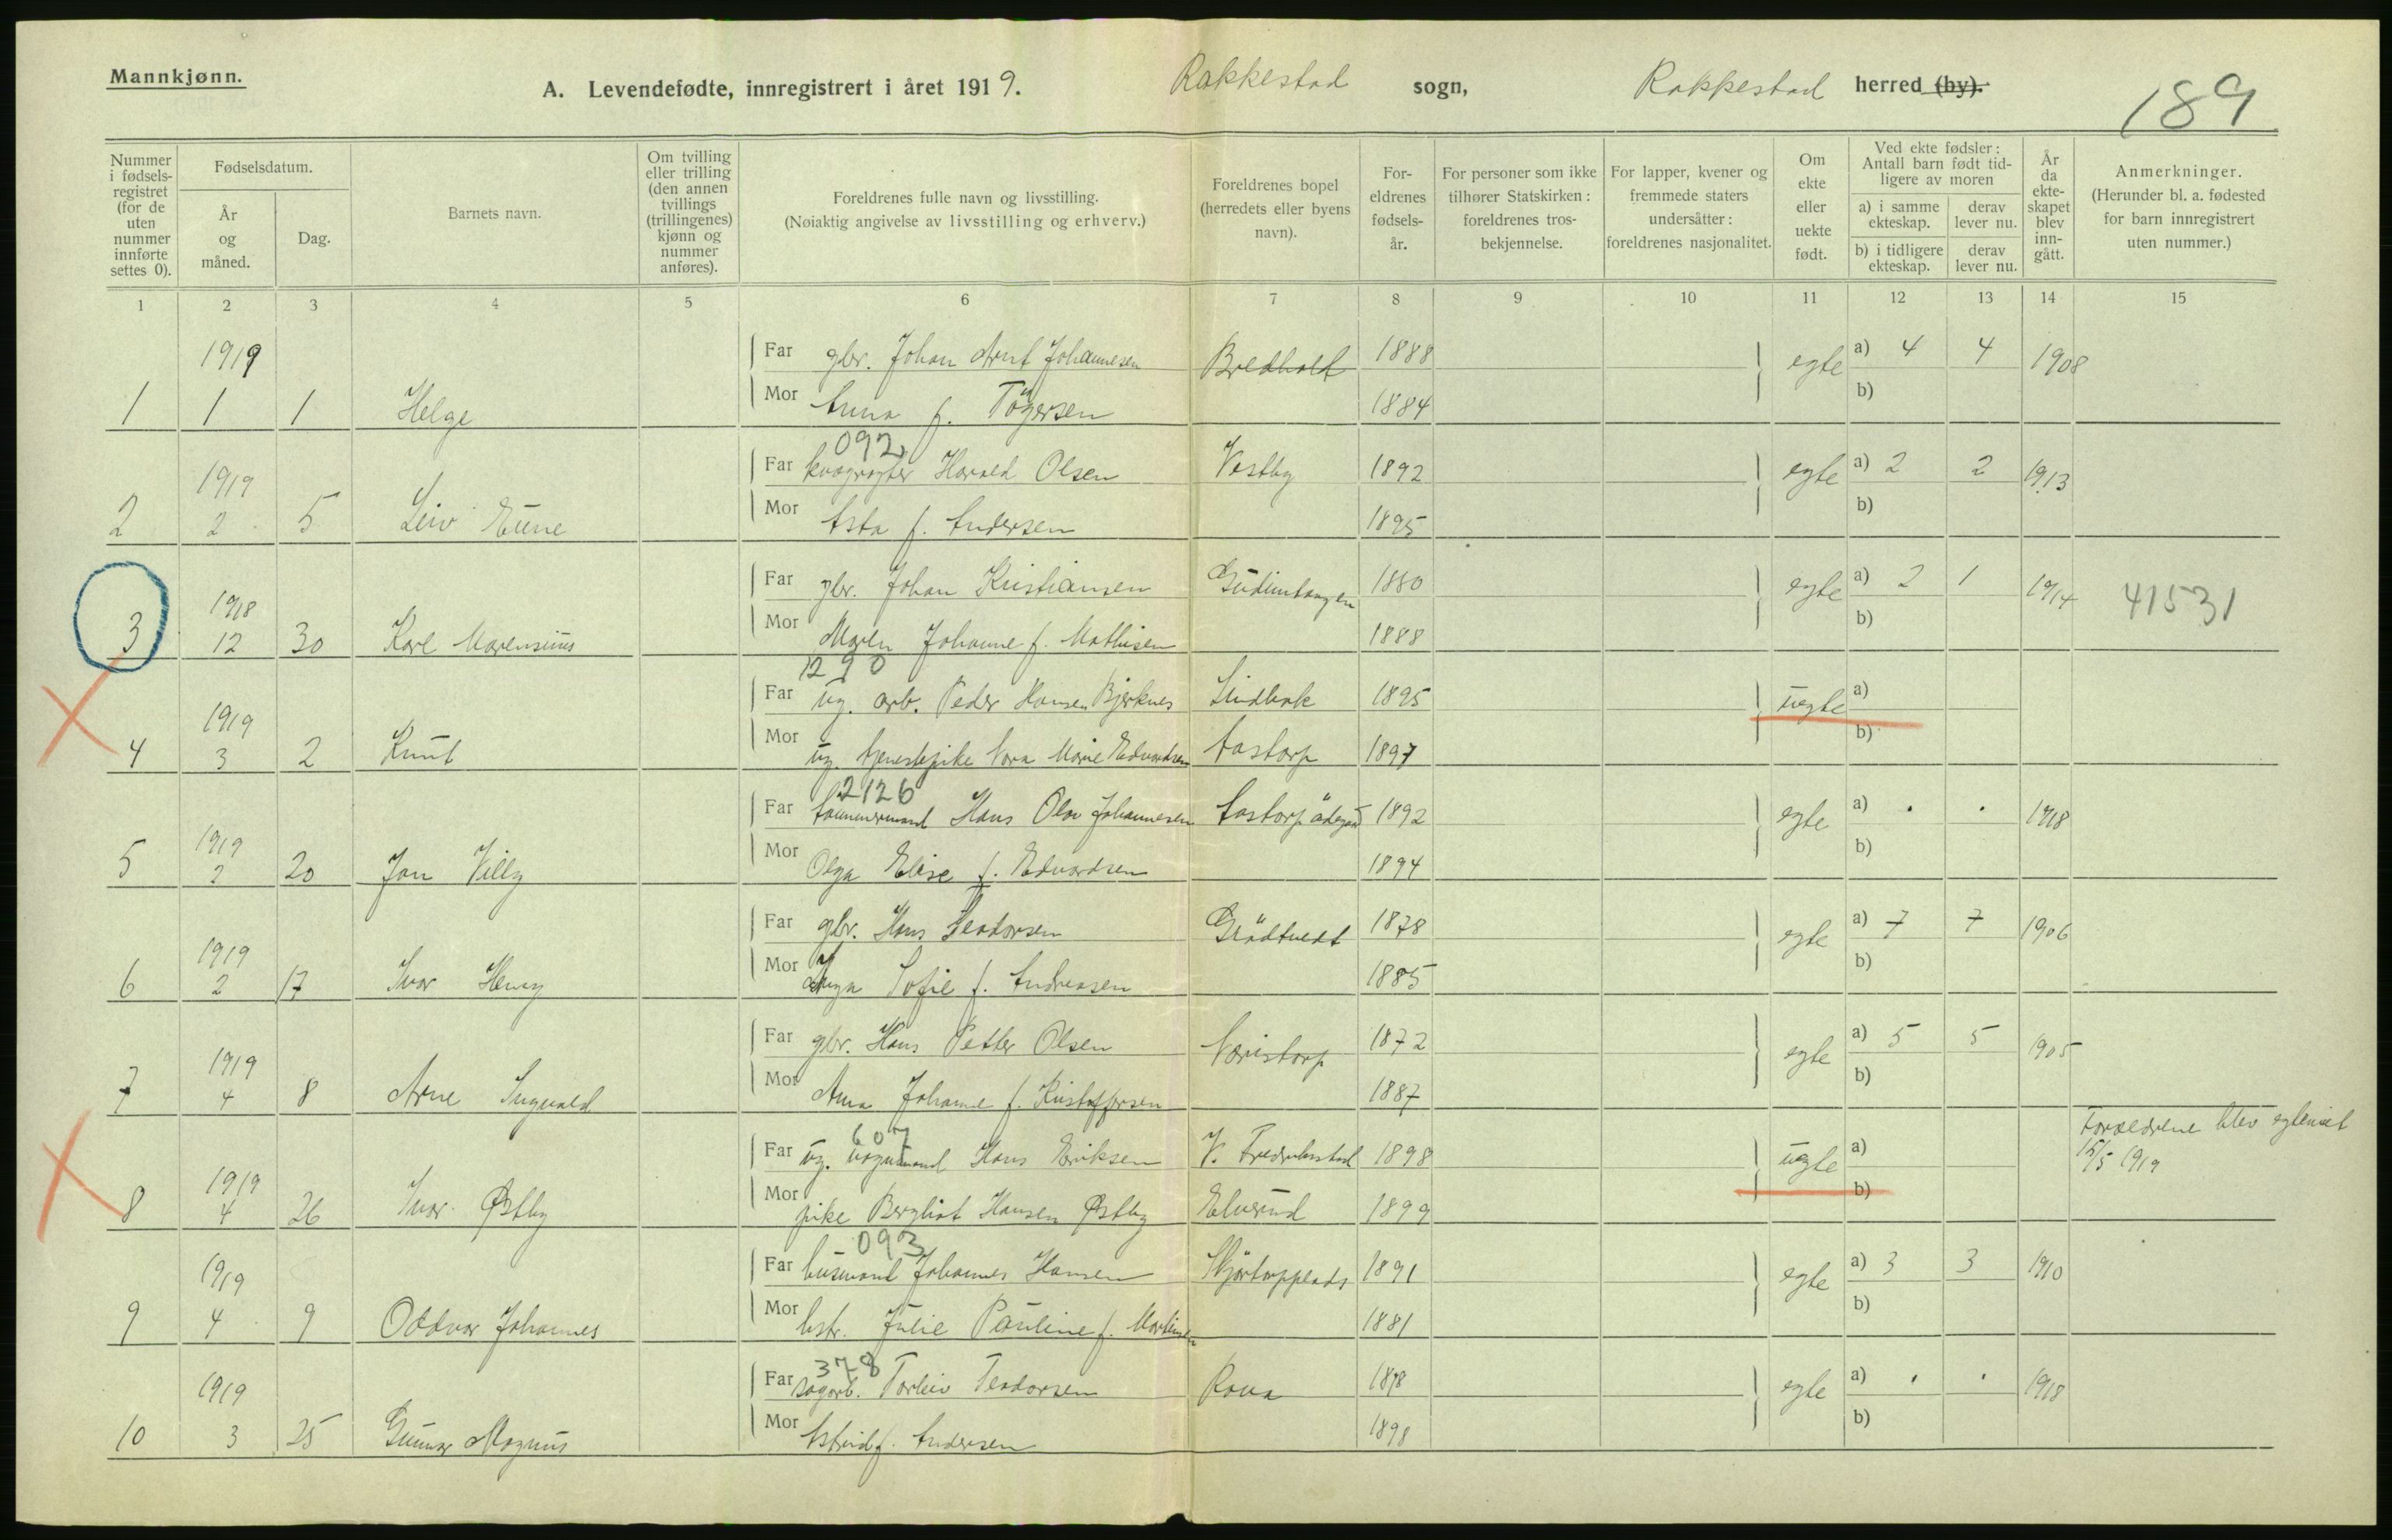 Mannkjønn.
A. Levendefødte, innregistrert i året 1919. Rakkestad sogn, Rakkestad herred (by).
189
Nummer i fødsels-registret (for de uten nummer innførte settes 0).
Fødselsdatum.
År og måned.
Dag.
Barnets navn.
Om tvilling eller trilling (den annen tvillings (trillingenes) kjønn og nummer anføres).
Foreldrenes fulle navn og livsstilling.
(Nøiaktig angivelse av livsstilling og erhverv.)
Foreldrenes bopel (herredets eller byens navn).
For-eldrenes fødsels-år.
For personer som ikke tilhører Statskirken: foreldrenes tros-bekjennelse.
For lapper, kvener og fremmede staters undersåtter: foreldrenes nasjonalitet.
Om ekte eller uekte født.
Ved ekte fødsler: Antall barn født tid-ligere av moren
a) i samme ekteskap.
derav lever nu.
b) i tidligere ekteskap.
derav lever nu.
År da ekte-skapet blev inn-gått.
Anmerkninger.
(Herunder bl. a. fødested for barn innregistrert uten nummer.)
1 2 3 4 5 6 7 8 9 10 11 12 13 14 15
1919 Far gbr. Johan Arnt Johannesen Bredholt 1888 egte a) 4 4 1908
1 1 1 Helge Mor Anna f. Tögersen 1884 b)
092
1919 Far Harald Olsen Vestby 1892 egte a) 2 2 1913
2 2 5 Leiv Eune Mor Asta f. Andersen 1895 b)
1918 Far gbr. Johan Kristiansen Gudimtangen 1880 egte a) 2 1 1914 41531
3 12 30 Karl Marensius Mor Maren Johanne f. Mathisen 1888 b)
1290
1919 Far ug. arb. Peder Hansen Bjerknes Lindbak 1895 uegte a)
4 3 2 Knut Mor ug. tjenestepike Nora Marie Edvardsen Aastorp 1897 b)
2126
1919 Far tömmermand Hans Olav Johannesen Aastorp 1892 egte a) . . 1918
5 2 20 Jan Villy Mor Olga Elise f. Edvardsen 1894 b)
1919 Far gbr. Hans Teodorsen Grödtvedt 1878 egte a) 7 7 1906
6 2 17 Ivar Henry Mor Sofie f. Andreasen 1885 b)
1919 Far gbr. Hans Petter Olsen Navistorp 1872 egte a) 5 5 1905
7 4 8 Arne Ingvald Mor Anna Johanne f. Kristoffersen 1887 b)
607
1919 Far ug. vognmand Hans Eriksen V. Fredrikstad 1898 uegte a) Forældrene blev egteviet 15/5 1919
8 4 26 Ivar Østby Mor pike Bergliot Hansen Østby Elverud 1899 b)
093
1919 Far husmand Johannes Hansen 1891 egte a) 3 3 1910
9 4 9 Oddvar Johannes Mor hstr. Julie Pauline f. Martinsen 1881 b)
378
1919 Far sagarb. Torleiv Teodorsen 1898 egte a) . . 1918
10 3 25 Gunnar Magnus Mor Astrid f. Andersen 1898 b)